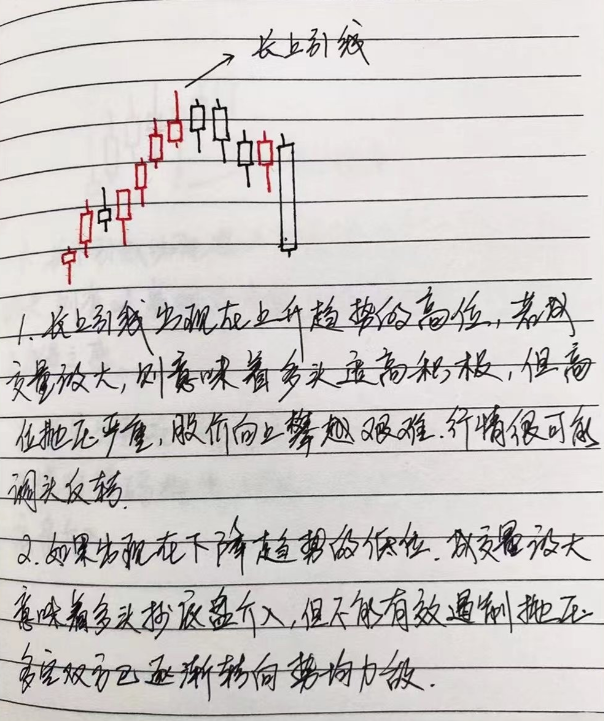 长上引线
1. 长上引线出现在上升趋势的高位，若成
交量放大，则意味着多头追高积极，但高
位抛压严重，股价向上攀越艰难.行情很可能
调头反转.
2. 如果出现在下降趋势的低位.成交量放大
意味着多头抄底盘介入，但不能有效遏制抛压
多空双方已逐渐转向势均力敌.